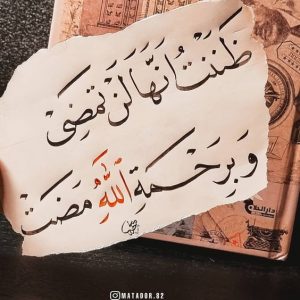 ظَنَنْتُ أَنَّهَا لَنْ تَمْضِىَ
وَبِرَحْمَةِ اللَّهِ مَضَتْ
MATADOR.82